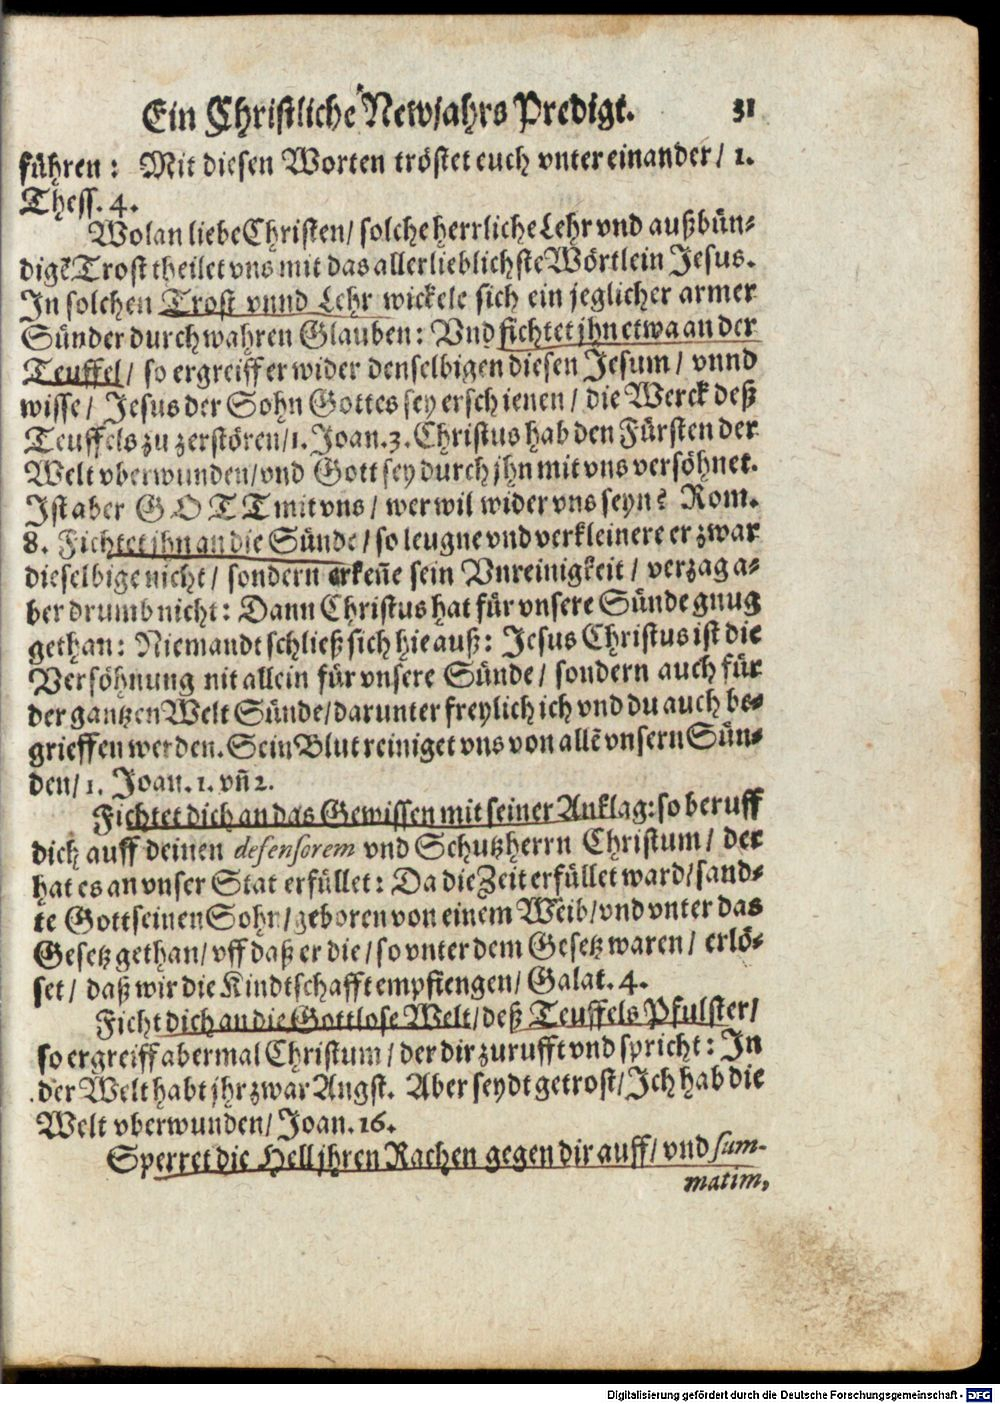 Ein Christliche Newjahrs Predigt. 31
führen: Mit diesen Worten tröstet euch vnter einander/ 1.
Thess. 4.
Wolan liebe Christen/ solche herrliche Lehr vnd außbün-
digẽ Trost theilet vns mit das allerlieblichste Wörtlein Jesus.
In solchen Trost vnnd Lehr wickele sich ein jeglicher armer
Sünder durch wahren Glauben: Vnd fichtet jhn etwa an der
Teuffel/ so ergreiff er wider denselbigen diesen Jesum/ vnnd
wisse/ Jesus der Sohn Gottes sey erschienen/ die Werck deß
Teuffels zu zerstören/ 1. Joan. 3. Christus hab den Fürsten der
Welt vberwunden/ vnd Gott sey durch jhn mit vns versöhnet.
Ist aber GOTT mit vns/ wer wil wider vns seyn? Rom.
8. Fichtet jhn an die Sünde/ so leugne vnd verkleinere er zwar
dieselbige nicht/ sondern erkeñe sein Vnreinigkeit/ verzag a-
ber drumb nicht: Dann Christus hat für vnsere Sünde gnug
gethan: Niemandt schließ sich hie auß: Jesus Christus ist die
Versöhnung nit allein für vnsere Sünde/ sondern auch für
der gantzen Welt Sünde/ darunter freylich ich vnd du auch be-
grieffen werden. Sein Blut reiniget vns von allẽ vnsern Sün-
den/ 1. Joan. 1. vñ 2.
Fichtet dich an das Gewissen mit seiner Anklag: so beruff
dich auff deinen defensorem vnd Schutzherrn Christum/ der
hat es an vnser Stat erfüllet: Da die Zeit erfüllet ward/ sand-
te Gott seinen Sohn/ geboren von einem Weib/ vnd vnter das
Gesetz gethan/ vff daß er die/ so vnter dem Gesetz waren/ erlö-
set/ daß wir die Kindtschafft empfiengen/ Galat. 4.
Ficht dich an die Gottlose Welt/ deß Teuffels Pfulster/
so ergreiff abermal Christum/ der dir zurufft vnd spricht: In
der Welt habt jhr zwar Angst. Aber seydt getrost/ Ich hab die
Welt vberwunden/ Joan. 16.
Sperret die Hell jhren Rachen gegen dir auff/ vnd sum-
matim,
Digitalisierung gefördert durch die Deutsche Forschungsgemeinschaft - DFG